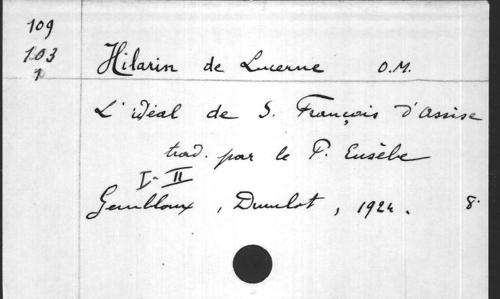 109
103
1
Hilarin de Lucerne O.M.
L'idéal de S. François d'Assise
trad. par le P. Eusèbe
I-II
Gembloux, Duculot, 1924. 8°